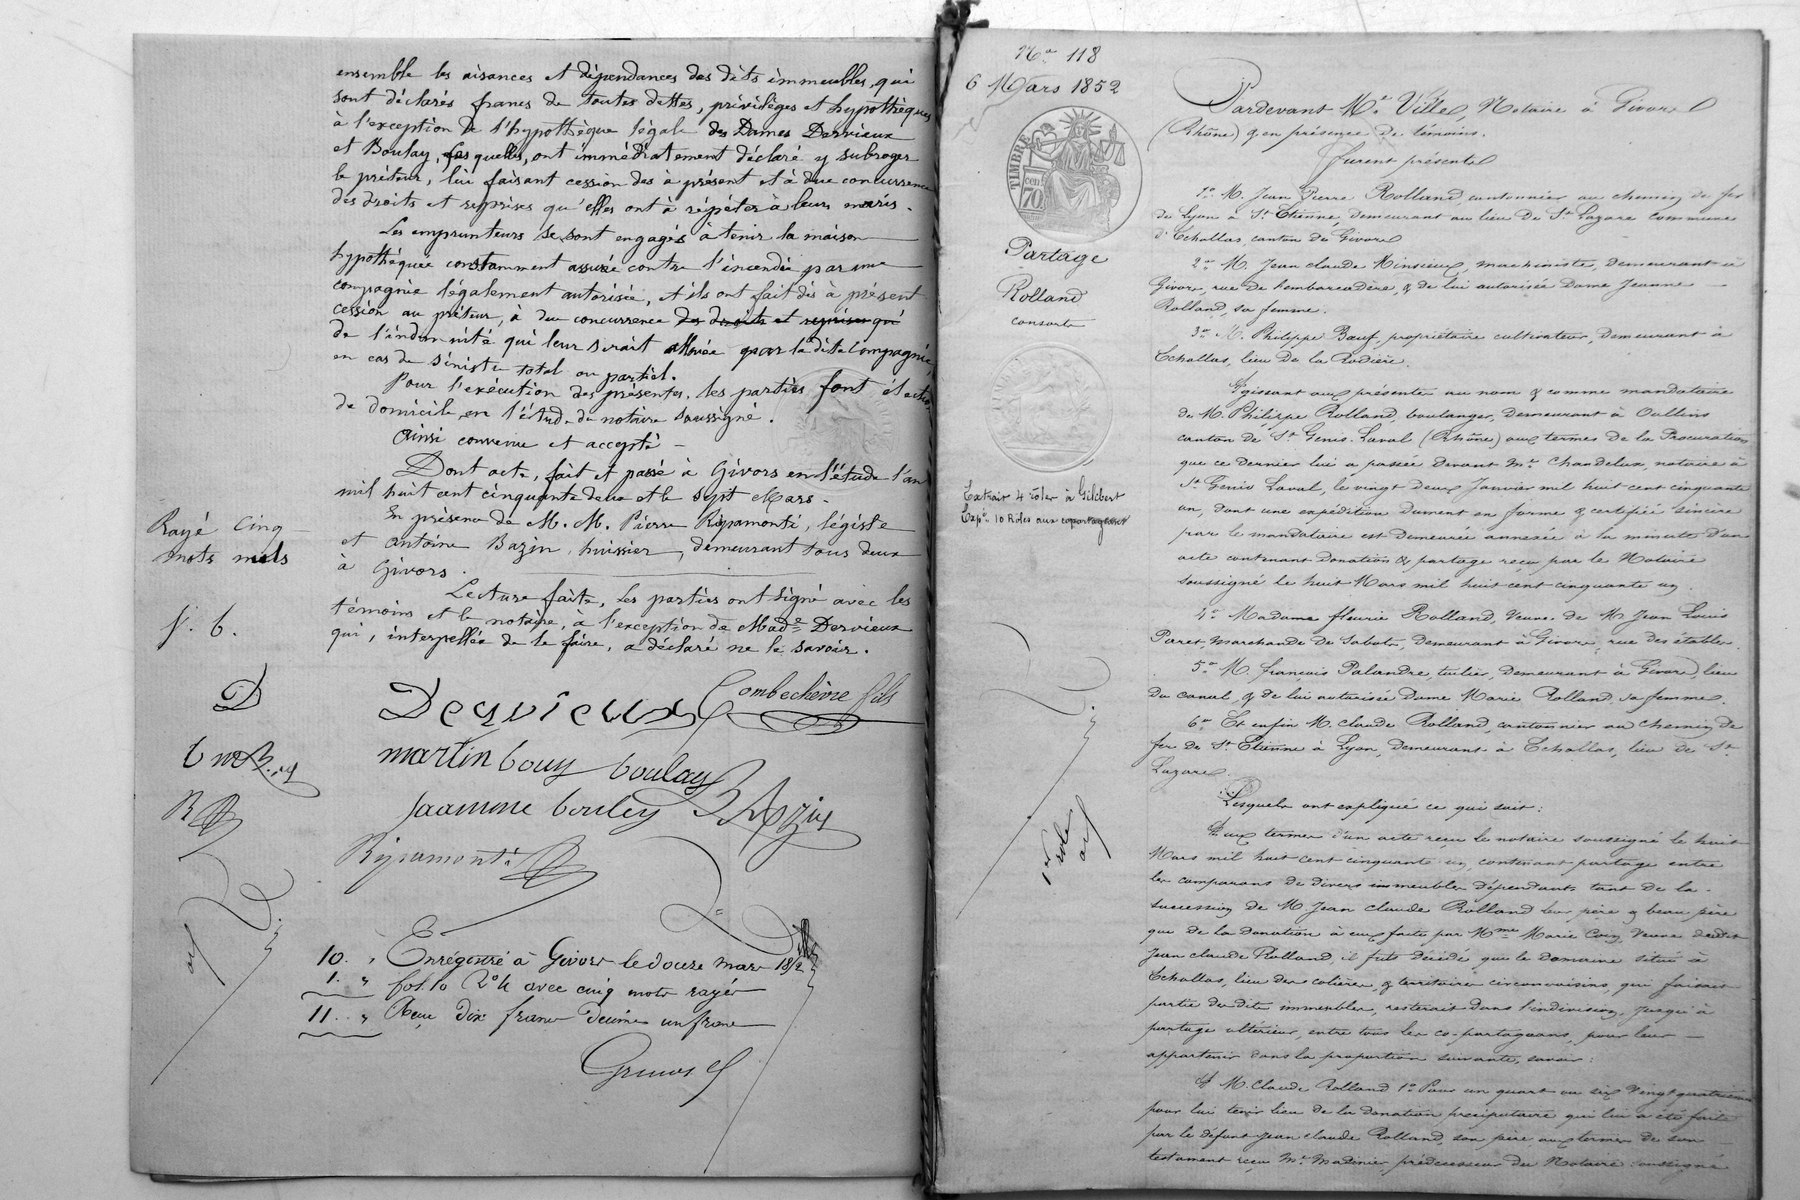 ensemble les aisances et dépendances des dits immeubles, qui
sont déclarés francs de toutes dettes, privilèges et hypothèques
à l'exception de l'hypothèque légale des Dames Dervieux
et Boulay, lesquelles, ont immédiatement déclaré y subroger
le prêteur, lui faisant cession dès à présent et à due concurrence
des droits et reprises qu'elles ont à répéter à leurs maris.
Les emprunteurs se sont engagés à tenir la maison
hypothéquée constamment assurée contre l'incendie par une
compagnie légalement autorisée, et ils ont fait dès à présent
cession au prêteur, à due concurrence des droits et reprises qu'
de l'indemnité qui leur serait allouée par la dite compagnie,
en cas de sinistre total ou partiel.
Pour l'exécution des présentes, les parties font élection
de domicile en l'étude du notaire soussigné.
Ainsi convenu et accepté
Dont acte, fait et passé à Givors en l'étude l'an
mil huit cent cinquante deux et le sept Mars.
En présence de M. M. Pierre Ripamonti, légiste
et Antoine Bazin, huissier, demeurant tous deux
à Givors.
Lecture faite, les parties ont signé avec les
témoins et le notaire, à l'exception de Made Dervieux
qui, interpellée de le faire, a déclaré ne le savoir.
Rayé cinq
mots nuls
J. B.
D
Dervieux Combechèvre fils
martin bouy boulay
Jaamme bouley Bazin
Ripamonti
10. " Enregistré à Givors le douze mars 1852
1. " fol. 10 Vo 4 avec cinq mots rayés
11. " Reçu dix francs décime un franc
No 118
6 Mars 1852
TIMBRE
70 cen
Partage
Rolland
consorts
Extrait 4 roles à Gilibert
Expon 10 Roles aux copartageants
1er role
Pardevant Me Ville, Notaire à Givors
(Rhône) & en présence de témoins.
furent présents
1o M. Jean Pierre Rolland, cantonnier au chemin de fer
de Lyon à St Etienne, demeurant au lieu de St Lazare commune
d'Echallas, canton de Givors
2o M. Jean claude Minsieux, machiniste, demeurant à
Givors, rue de l'embarcadère, & de lui autorisée Dame Jeanne
Rolland, sa femme.
3o M. Philippe Bœuf, propriétaire cultivateur, demeurant à
Echallas, lieu de la Rodière.
Agissant aux présentes au nom & comme mandataire
de M. Philippe Rolland, boulanger, demeurant à Oullins
canton de St Genis-Laval (Rhône) aux termes de la Procuration
que ce dernier lui a passée devant Me Chandelux, notaire à
St Genis Laval, le vingt deux Janvier mil huit cent cinquante
un, dont une expédition dument en forme & certifiée sincère
par le mandataire est demeurée annexée à la minute d'un
acte contenant donation & partage reçu par le Notaire
soussigné le huit Mars mil huit cent cinquante un
4o Madame fleurie Rolland, veuve de M. Jean Louis
Paret, marchande de sabots, demeurant à Givors, rue des étables.
5o M. françois Palandre tuilier, demeurant à Givors, lieu
du canal, & de lui autorisée Dame Marie Rolland sa femme.
6o Et enfin M. claude Rolland, cantonnier au chemin de
fer de St Etienne à Lyon, demeurant à Echallas, lieu de St
Lazare.
Lesquels ont expliqué ce qui suit:
Aux termes d'un acte reçu le notaire soussigné le huit
Mars mil huit cent cinquante un, contenant partage entre
les comparans de divers immeubles dépendants tant de la
succession de M. Jean claude Rolland leur père & beau père
que de la donation à eux faite par Mme Marie veuve dudit
Jean claude Rolland, il fut décidé que le domaine situé à
Echallas, lieu des colières, & territoires circonvoisins, qui faisait
partie des dits immeubles, resterait dans l'indivision, jusqu'à
partage ultérieur, entre tous les co-partageans, pour leur
appartenir dans la proportion suivante, savoir:
A M. Claude Rolland 1o Pour un quart ou six vingt-quatrièmes
pour lui tenir lieu de la donation préciputaire qui lui a été faite
par le défunt Jean claude Rolland, son père aux termes de son
testament reçu Me Madinier, prédécesseur du Notaire soussigné